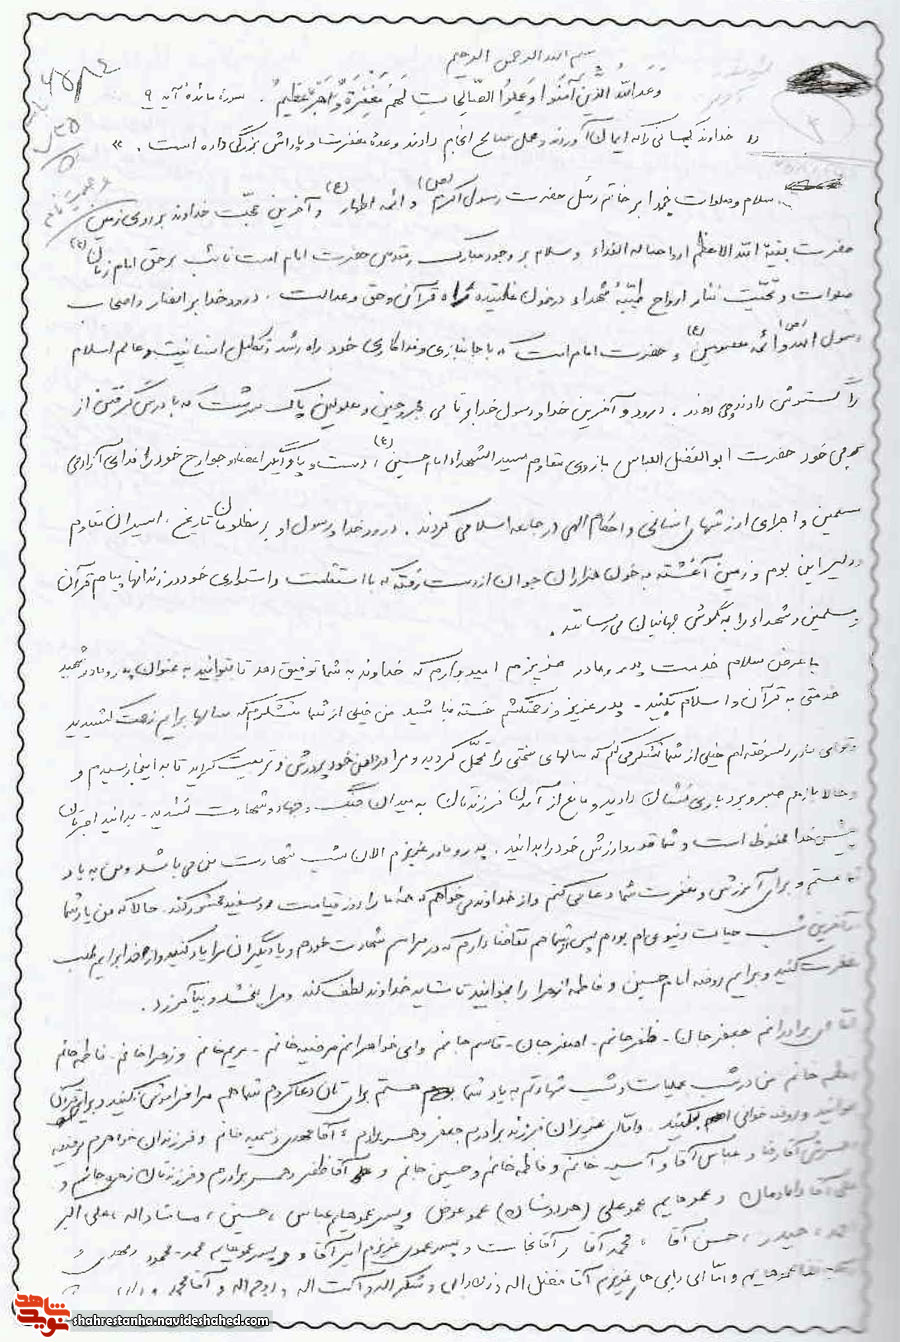 بسم الله الرحمن الرحیم
وعد الله الذین آمنوا و عملوا الصالحات لهم مغفرة و اجر عظیم . سوره مائده آیه ۹
(( خداوند کسانی را که ایمان آوردند و عمل صالح انجام دادند وعده مغفرت و پاداش بزرگی داده است . ))
سلام و صلوات خدا بر خاتم رسل حضرت رسول اکرم (ص) و ائمه اطهار (ع) و آخرین حجت خداوند بر روی زمین
حضرت بقیة الله الاعظم ارواحنا له الفداء و سلام بر وجود مبارک و مقدس حضرت امام امت نائب بر حق امام زمان (ع)
صلوات و تحیت نثار ارواح طیبه شهداء در خون غلتیده راه قرآن و حق و عدالت . درود خدا بر انصار و اصحاب
رسول الله (ص) و ائمه معصومین (ع) و حضرت امام امت که با جانبازی و فداکاری خود راه رشد و تکامل انسانیت و عالم اسلام
را گسترش دادند و می دهند . درود و آفرین خدا و رسول خدا بر تمامی مجروحین و معلولین پاک سرشت که با درس گرفتن از
مربی خود حضرت ابوالفضل العباس بازوی مقاوم سید الشهداء امام حسین (ع) ، دست و پا و دیگر اعضاء و جوارح خود را فدای آزادی
مسلمین و اجرای ارزشهای انسانی و احکام الهی در جامعه اسلامی کردند . درود خدا و رسول او بر مظلومان تاریخ ، اسیران مقاوم
و دلیر این بوم و زمین آغشته به خون هزاران جوان از دست رفته که با استقامت و استواری خود در زندانها پیام قرآن
و مسلمین و شهداء را به گوش جهانیان می رسانند .
با عرض سلام خدمت پدر و مادر عزیزم امیدوارم که خداوند به شما توفیق دهد تا بتوانید به عنوان پدر و مادر شهید
خدمتی به قرآن و اسلام بکنید - پدر عزیز و زحمتکشم خسته نباشید من خیلی از شما متشکرم که سالها برایم زحمت کشیدید
و توای مادر دلسوخته ام خیلی از شما تشکر می کنم که سالهای سختی را تحمل کردید و مرا در دامن خود پرورش و تربیت کردید تا به اینجا رسیدم و
و حالا باز هم صبر و بردباری نشان دادید و مانع از آمدن فرزندتان به میدان جنگ و جهاد و شهادت نشدید - بدانید اجرتان
پیش خدا محفوظ است و شما قدر و ارزش خود را بدانید . پدر و مادر عزیزم الان شب شهادت من می باشد و من به یاد
شما هستم و برای آمرزش و مغفرت شما دعا می کنم و از خداوند می خواهم که همه ما را روز قیامت رو سفید محشور کند . حالا که من یاد شما
در آخرین شب حیات دنیوی ام بودم پس از شما هم تقاضا دارم که در مراسم شهادت خودم و یا دیگران مرا یاد کنید و از خدا برایم طلب
مغفرت کنید و برایم روضه امام حسین و فاطمه الزهرا را بخوانید تا شاید خداوند لطف کند و مرا ببخشد و بیامرزد .
اما ای برادرانم جعفر جان - ظفر جانم - اصغر جان - قاسم جانم و ای خواهرانم مرضیه خانم - مریم خانم و زهرا خانم - فاطمه خانم
خانم من در شب عملیات و شب شهادتم به یاد شما هستم برای تان دعا کردم شما هم مرا فراموش نکنید و برایم قرآن
بخوانید و روضه خوانی بکنید . و اما ای عزیزان فرزند برادرم جعفر و همسر برادرم ، آقا مهدی و سمیه خانم و فرزندان خواهرم مرضیه
همسرش آقا رضا و عباس آقا و آسیه خانم و فاطمه خانم و حسین جانم و آقا ظفر و همسر برادرم و فرزندتان زهرا خانم و
علی آقا دامادمان و عموهایم عمو علی ( هر دوشان ) عمو عوض و پسر عموهایم عباس ، حسین ، ماشاءاله ، علی اکبر
حیدر ، حسن آقا ، محمد آقا و آقا نجات و پسر عموی عزیزم امیر آقا و پسر عموهایم محمد - محمود و مهدی و
عموهایم و اما ای دایی های عزیزم آقا فضل اله و فرزندان و شکراله و آیت اله و روح اله و آقا محمد
نوید شاهد
shahrestanha.navideshahed.com